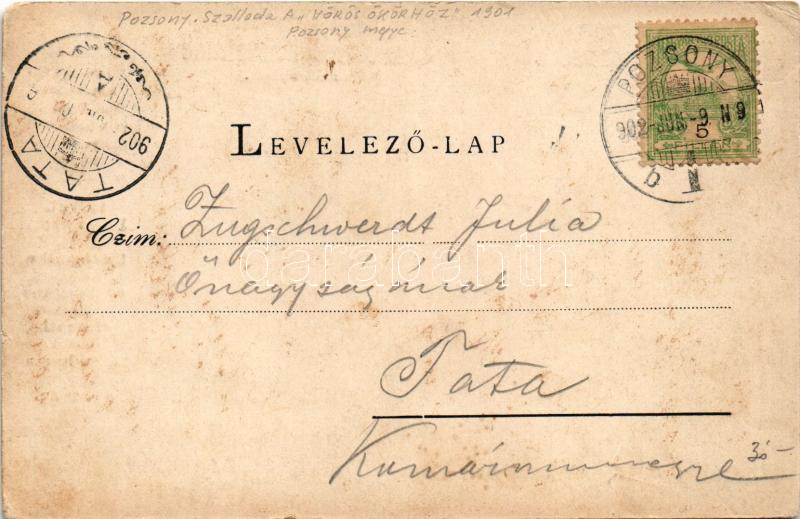 Pozsony. Szálloda A „VÖRÖS ÖKÖRHÖZ" 1901
Pozsony megye.
TATA
902
POZSONY
902-JUN.-9 N9
5
LEVELEZŐ-LAP
Czim: Zugschwerdt Julia
Őnagyságának
darabanth
Tata
35-